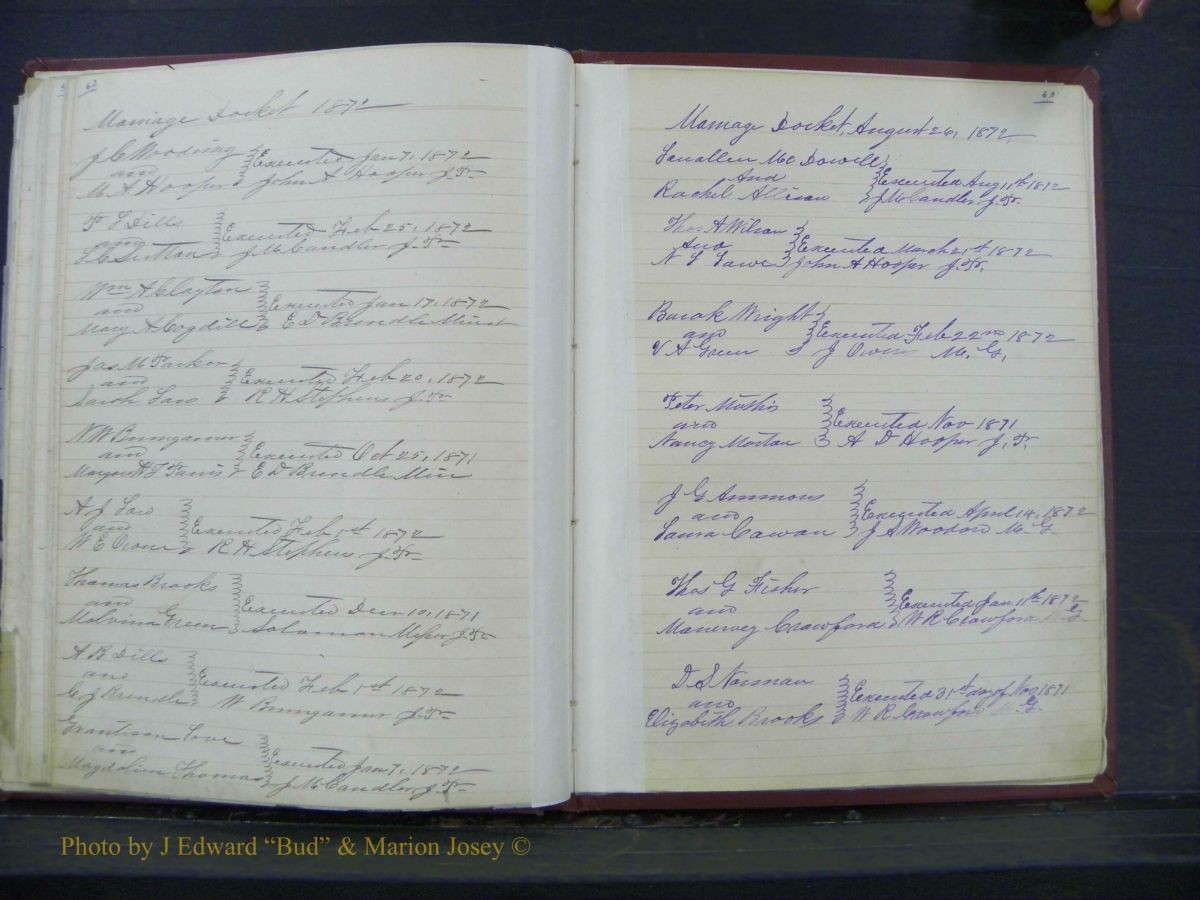 62
Marriage Docket 1872
J C Wooding
and Executed Jan 7, 1872
M A Hooper John A Hooper J. P.
T L Dills
and Executed Feb 25, 1872
L C Sutton J M Candler J. P.
Wm A Clayton
and Executed Jan 17, 1872
Mary A Cogdill E D Brendle Minst
Jas M Parker
and Executed Feb 20, 1872
Sarah R H Stephens J. P.
N W Bumgarner
and Executed Oct 25, 1871
Margaret E D Brendle Min
A J
and Executed Feb 1st 1872
W E Owen R H Stephens J. P.
Thomas Brooks
and Executed Decr 10, 1871
Malvina Green Soloman Messer J. P.
A B Dills
and Executed Feb 1st 1872
C J Brendle W Bumgarner J. P.
Grantison Love
and Executed Jan 7, 1872
Magdalien Thomas J M Candler, J. P.
63
Marriage Docket, August 26, 1872
Mc Dowell
And Executed Aug 11th 1872
Rachel Allison J M Candler J. P.
Thos A Wilson
And Executed March 21st 1872
N L John A Hooper J. P.
Barak Wright
and Executed Feb 22nd 1872
V A Green J Owen M. G.
Peter Mathis
and Executed Nov 1871
Nancy Morton A D Hooper J. P.
J G Ammons
and Executed April 14, 1872
Laura Cawan J S Woodard M. G.
Thos G Fisher
and Executed Jan 11th 1872
Manervey Crawford W R Crawford M G
D S Norman
and Executed 21st day of Nov 1871
Elizabeth Brooks W R Crawford M. G.
Photo by J Edward “Bud” & Marion Josey ©